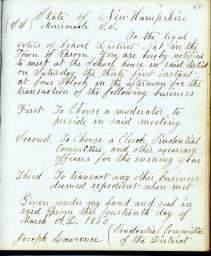 State of New Hampshire
Merrimack S.S.
To the legal
voters of School District No 1, in the
Town of Epsom, you are hereby notified
to meet at the School House in said district
on Saturday, the thirty first instant
at four o'clock in the afternoon for the
transaction of the following business
First. To Choose a moderator, to
preside in said meeting
Second. To Choose a Clerk, Prudential
Committee, and other necessary
officers for the ensuing year
Third. To transact any other business
deemed expedient when met
Given under my hand and seal in
said Epsom this fourteenth day of
March A.D. 1860
Joseph Lawrence } Prudential Committee
of the District